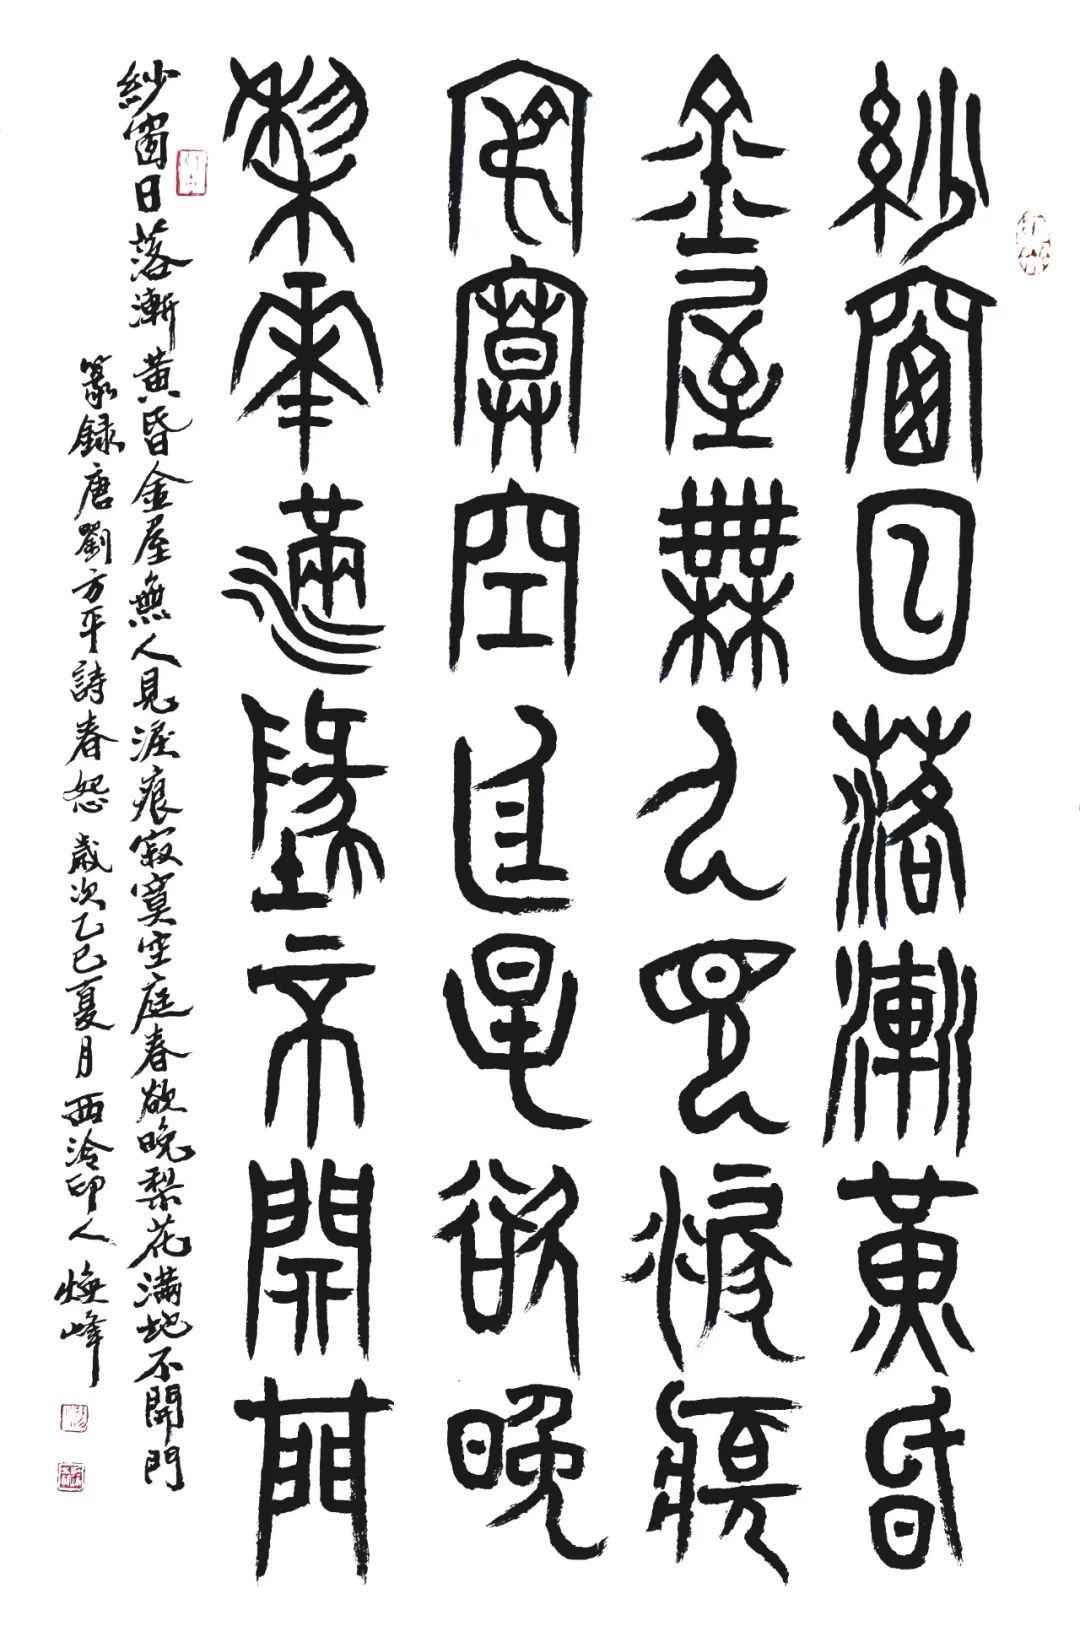 紗窗日落漸黃昏
金屋無人見淚痕
寂寞空庭春欲晚
梨花滿地不開門
紗窗日落漸黃昏金屋無人見淚痕寂寞空庭春欲晚梨花满地不開門
篆録唐劉方平詩春怨歲次乙巳夏月西泠印人煥峰